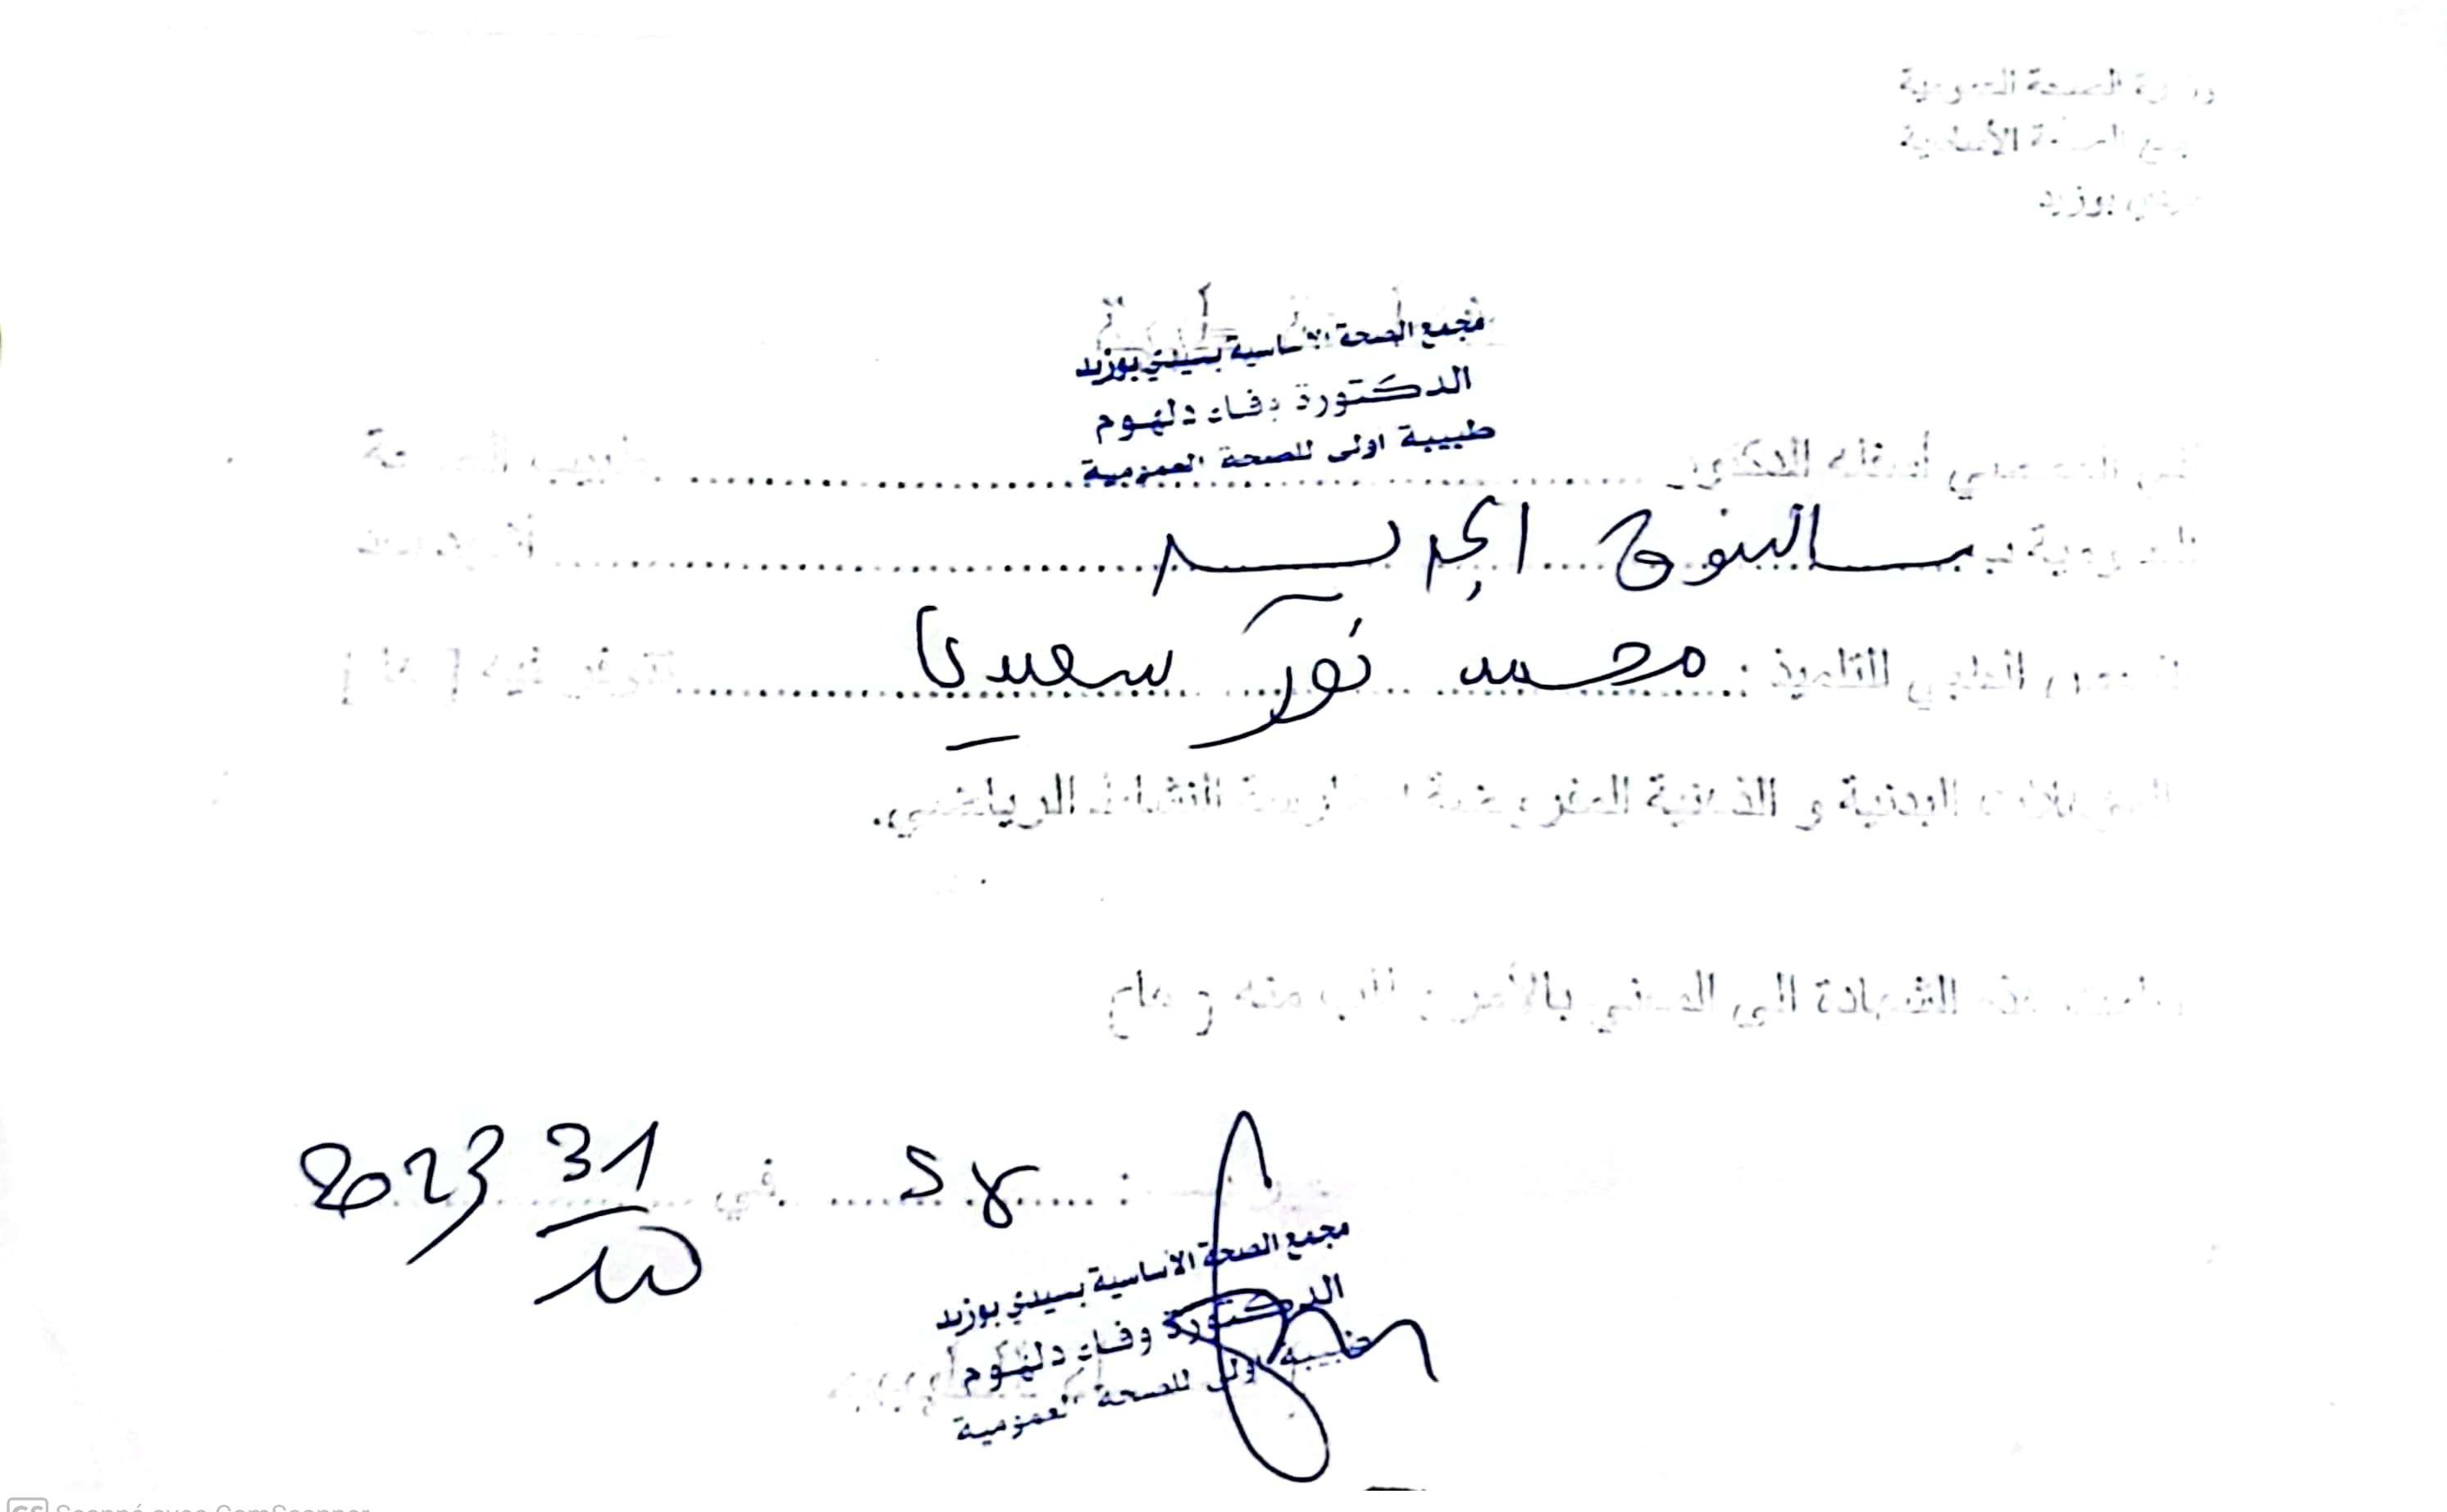 وزارة الصحة العمومية
الصحة الأساسية
بوزيد
مجمع الصحة الاساسية بسيدي بوزيد
الدكتورة وفاء دلهوم
طبيبة اولى للصحة العمومية
أسفله الدكتور ........ طبيب الصحة
العمومية بـ ........ أن
الطبي للتلميذ : محمد نور سعيدي ........ تتوفر فيه
المؤهلات البدنية و الذهنية المفروضة لممارسة النشاط الرياضي.
هذه الشهادة الى المعني بالأمر بطلب منه و
: ........ في 31/10 2023
مجمع الصحة الاساسية بسيدي بوزيد
الدكتورة وفاء دلهوم
طبيبة اولى للصحة العمومية
CS Scanné avec CamScanner